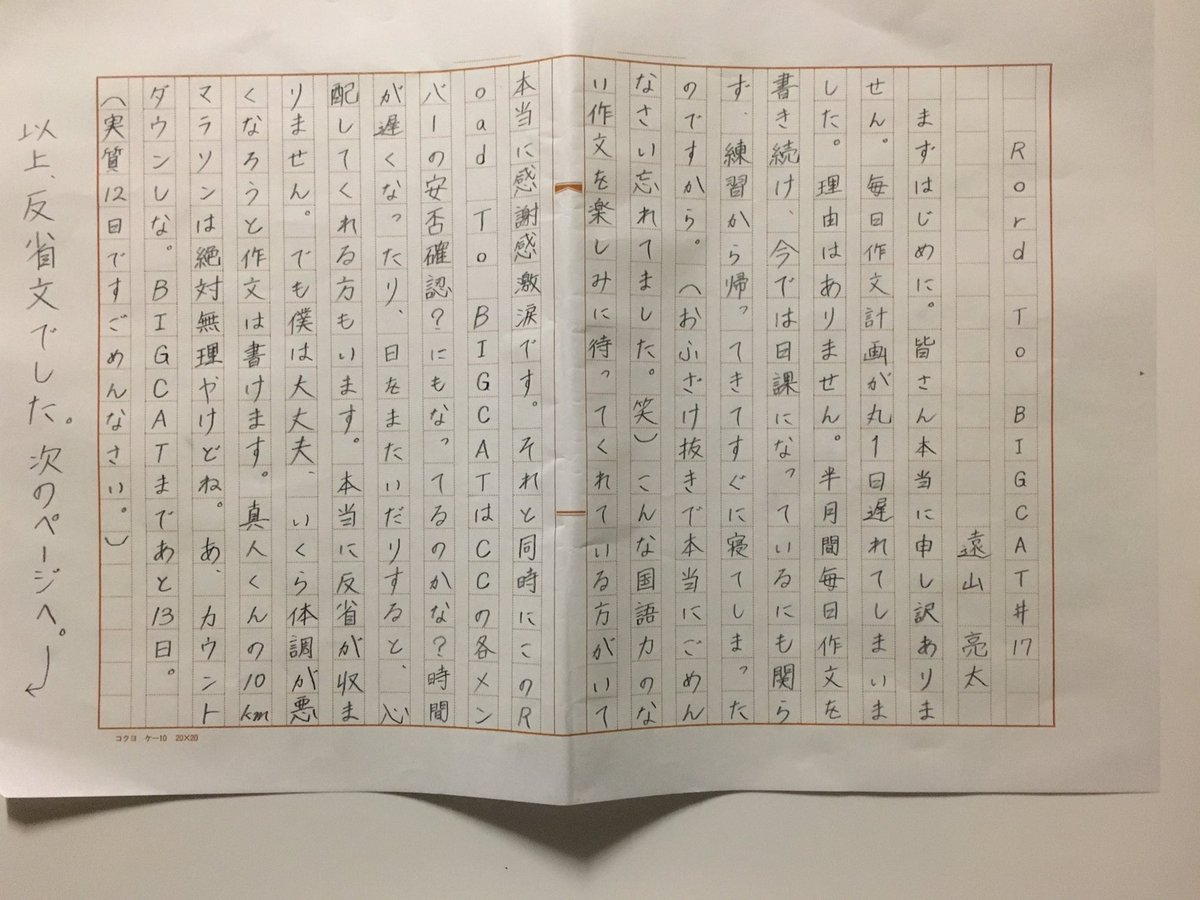 Rord To BIGCAT#17
遠山 亮太
まずはじめに。皆さん本当に申し訳ありま
せん。毎日作文計画が丸1日遅れてしまいま
した。理由はありません。半月間毎日作文を
書き続け、今では日課になっているにも関ら
ず、練習から帰ってきてすぐに寝てしまった
のですから。(おふざけ抜きで本当にごめん
なさい忘れてました。笑)こんな国語力のな
い作文を楽しみに待ってくれている方がいて
本当に感謝感激涙です。それと同時にこのR
oad To BIGCATはCCの各メン
バーの安否確認?にもなってるのかな?時間
が遅くなったり、日をまたいだりすると、心
配してくれる方もいます。本当に反省が収ま
りません。でも僕は大丈夫、いくら体調が悪
くなろうと作文は書けます。真人くんの10km
マラソンは絶対無理やけどね。あ、カウント
ダウンしな。BIGCATまであと13日。
(実質12日ですごめんなさい。)
以上、反省文でした。次のページへ。
コクヨ ケー10 20×20